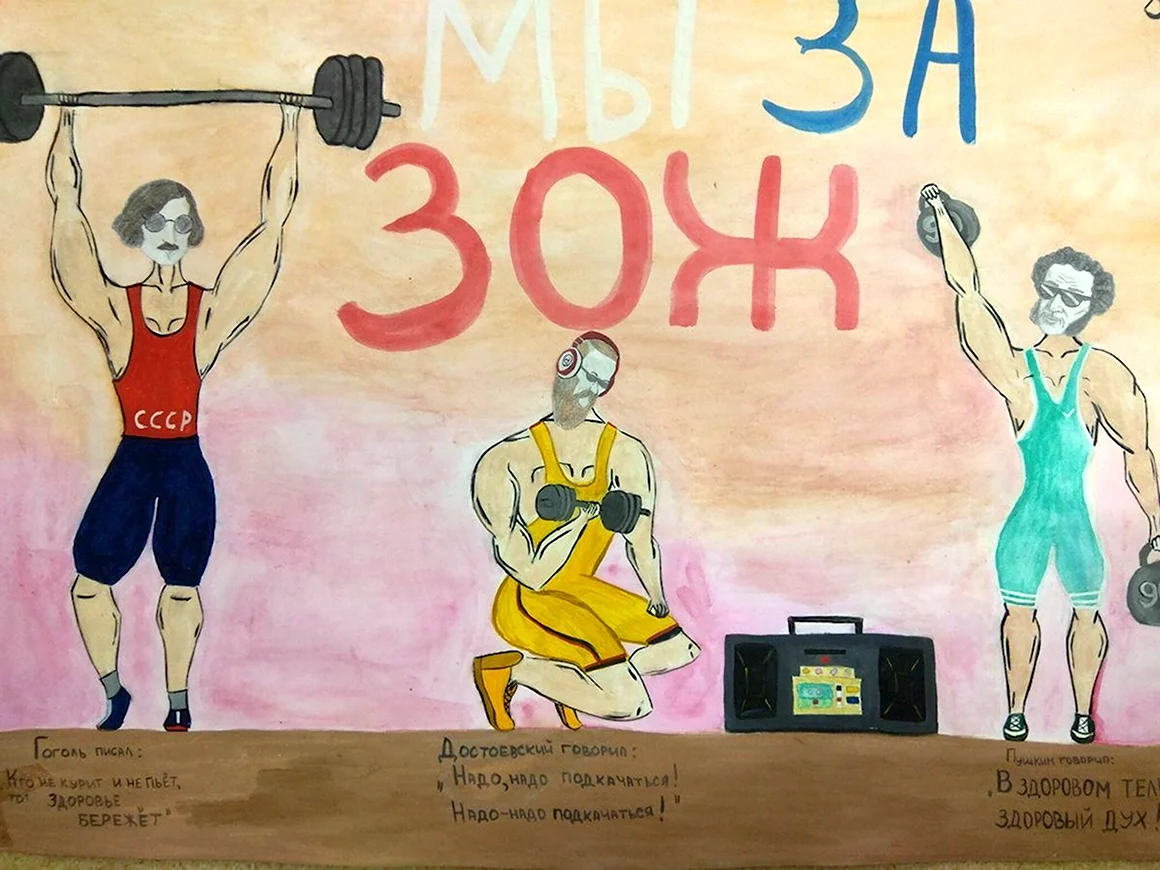 МЫ ЗА
ЗОЖ
СССР
9
9
Гоголь писал:
Кто не курит и не пьёт,
тот ЗДОРОВЬЕ
БЕРЕЖЁТ"
Достоевский говорил:
„Надо, надо подкачаться!
Надо-надо подкачаться!"
Пушкин говорил:
„В ЗДОРОВОМ ТЕЛ
ЗДОРОВЫЙ ДУХ!